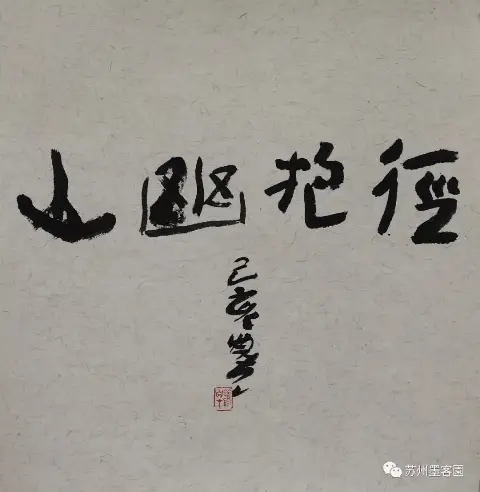 徑抱幽山
己亥
苏州墨客園